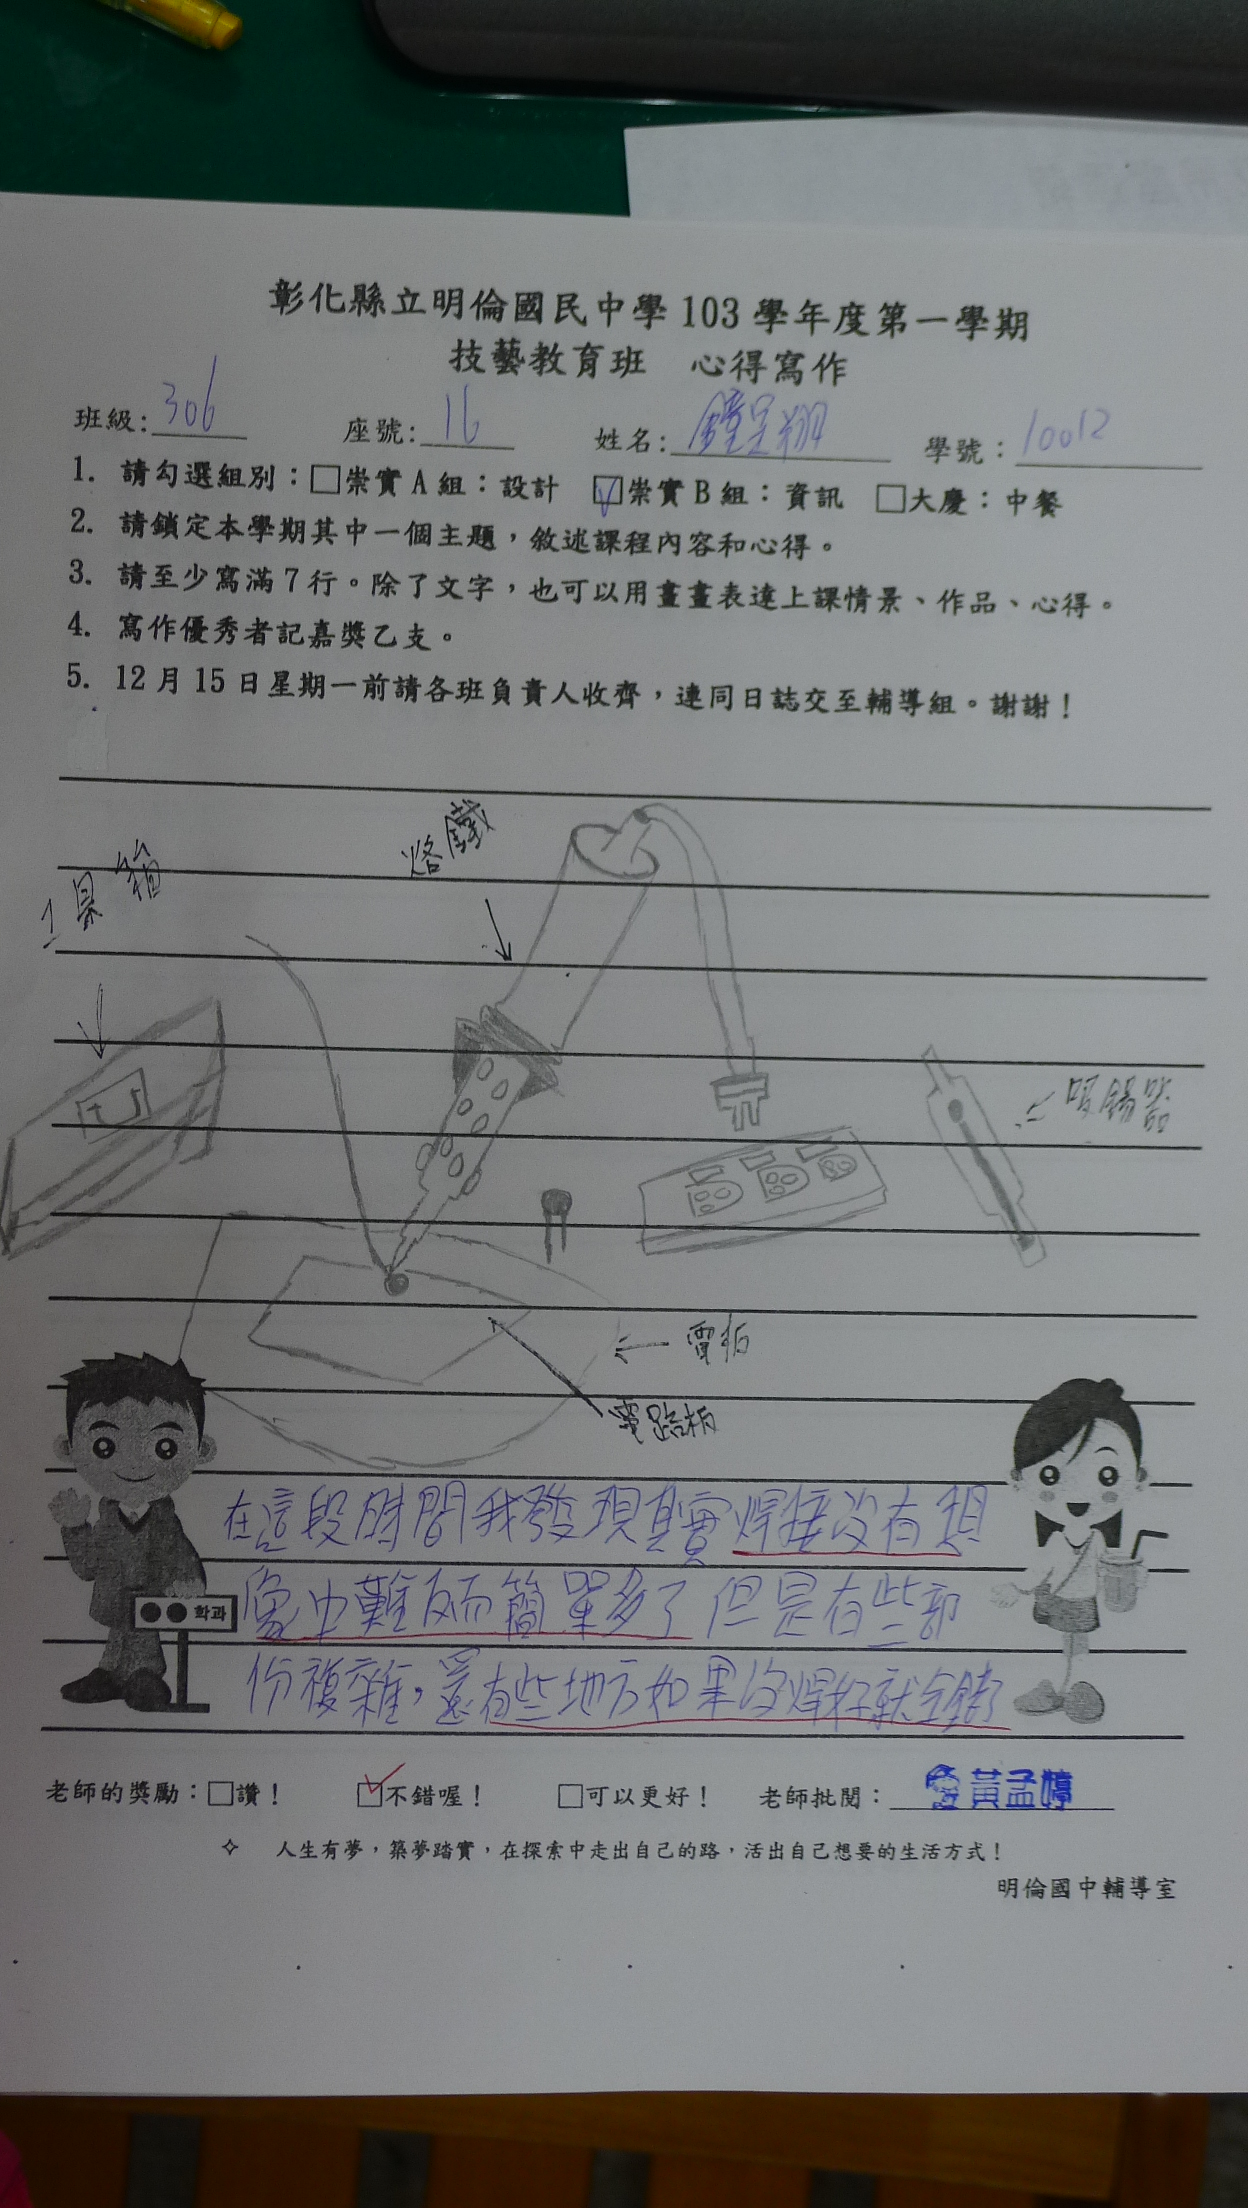 彰化縣立明倫國民中學 103 學年度第一學期
技藝教育班 心得寫作
班級:306 座號:16 姓名:鐘呈翔 學號:10012
1. 請勾選組別:□崇實 A 組:設計 ☑崇實 B 組:資訊 □大慶:中餐
2. 請鎖定本學期其中一個主題,敘述課程內容和心得。
3. 請至少寫滿 7 行。除了文字,也可以用畫畫表達上課情景、作品、心得。
4. 寫作優秀者記嘉獎乙支。
5. 12 月 15 日星期一前請各班負責人收齊,連同日誌交至輔導組。謝謝!
烙鐵
工具箱
吸錫器
電路板
在這段時間我發現其實焊接沒有想
像中難反而簡單多了但是有些部
份複雜,還有些地方如果沒焊好就全錯了
학과
老師的獎勵:□讚! ☑不錯喔! □可以更好! 老師批閱:黃孟婷
✧ 人生有夢,築夢踏實,在探索中走出自己的路,活出自己想要的生活方式!
明倫國中輔導室